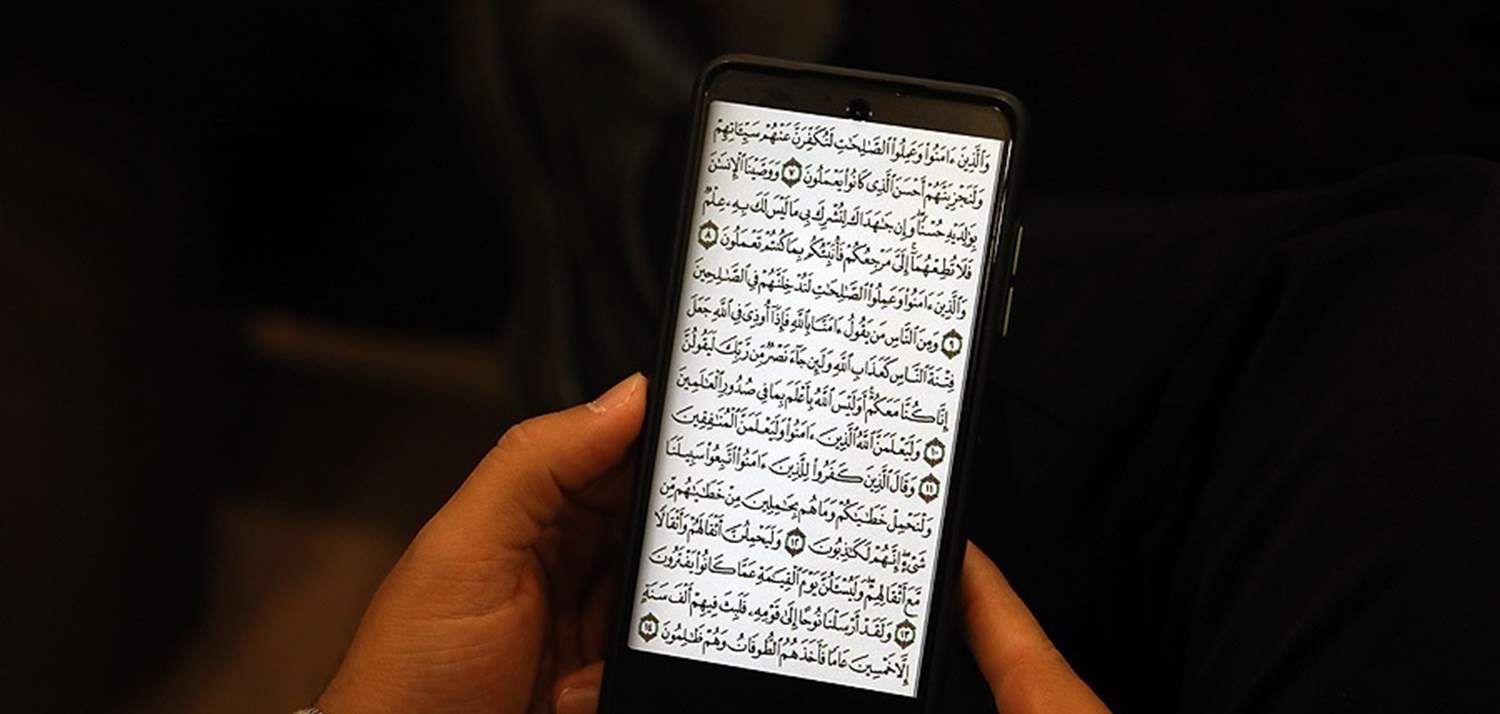 وَٱلَّذِينَ ءَامَنُوا۟ وَعَمِلُوا۟ ٱلصَّـٰلِحَـٰتِ لَنُكَفِّرَنَّ عَنْهُمْ سَيِّـَٔاتِهِمْ
وَلَنَجْزِيَنَّهُمْ أَحْسَنَ ٱلَّذِى كَانُوا۟ يَعْمَلُونَ ٧ وَوَصَّيْنَا ٱلْإِنسَـٰنَ
بِوَٰلِدَيْهِ حُسْنًا ۖ وَإِن جَـٰهَدَاكَ لِتُشْرِكَ بِى مَا لَيْسَ لَكَ بِهِۦ عِلْمٌ
فَلَا تُطِعْهُمَآ ۚ إِلَىَّ مَرْجِعُكُمْ فَأُنَبِّئُكُم بِمَا كُنتُمْ تَعْمَلُونَ ٨
وَٱلَّذِينَ ءَامَنُوا۟ وَعَمِلُوا۟ ٱلصَّـٰلِحَـٰتِ لَنُدْخِلَنَّهُمْ فِى ٱلصَّـٰلِحِينَ
٩ وَمِنَ ٱلنَّاسِ مَن يَقُولُ ءَامَنَّا بِٱللَّهِ فَإِذَآ أُوذِىَ فِى ٱللَّهِ جَعَلَ
فِتْنَةَ ٱلنَّاسِ كَعَذَابِ ٱللَّهِ وَلَئِن جَآءَ نَصْرٌ مِّن رَّبِّكَ لَيَقُولُنَّ
إِنَّا كُنَّا مَعَكُمْ ۚ أَوَلَيْسَ ٱللَّهُ بِأَعْلَمَ بِمَا فِى صُدُورِ ٱلْعَـٰلَمِينَ
١٠ وَلَيَعْلَمَنَّ ٱللَّهُ ٱلَّذِينَ ءَامَنُوا۟ وَلَيَعْلَمَنَّ ٱلْمُنَـٰفِقِينَ
١١ وَقَالَ ٱلَّذِينَ كَفَرُوا۟ لِلَّذِينَ ءَامَنُوا۟ ٱتَّبِعُوا۟ سَبِيلَنَا
وَلْنَحْمِلْ خَطَـٰيَـٰكُمْ وَمَا هُم بِحَـٰمِلِينَ مِنْ خَطَـٰيَـٰهُم مِّن
شَىْءٍ ۖ إِنَّهُمْ لَكَـٰذِبُونَ ١٢ وَلَيَحْمِلُنَّ أَثْقَالَهُمْ وَأَثْقَالًا
مَّعَ أَثْقَالِهِمْ ۖ وَلَيُسْـَٔلُنَّ يَوْمَ ٱلْقِيَـٰمَةِ عَمَّا كَانُوا۟ يَفْتَرُونَ
١٣ وَلَقَدْ أَرْسَلْنَا نُوحًا إِلَىٰ قَوْمِهِۦ فَلَبِثَ فِيهِمْ أَلْفَ سَنَةٍ
إِلَّا خَمْسِينَ عَامًا فَأَخَذَهُمُ ٱلطُّوفَانُ وَهُمْ ظَـٰلِمُونَ ١٤